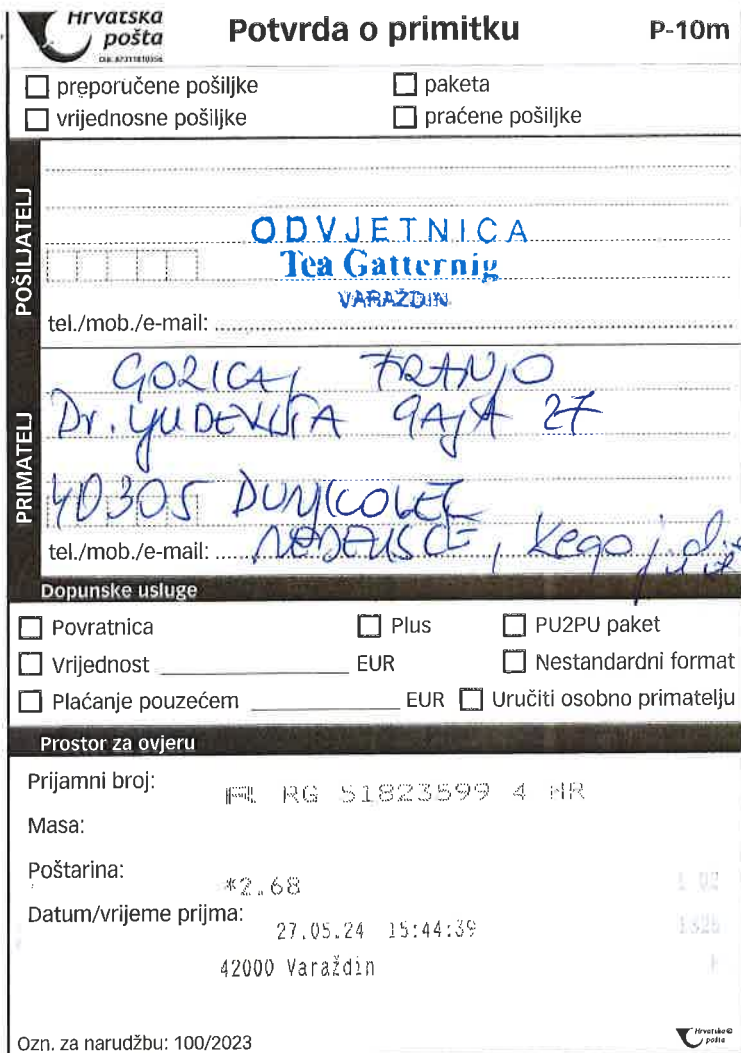 Hrvatska pošta
Potvrda o primitku
P-10m
preporučene pošiljke
paketa
vrijednosne pošiljke
praćene pošiljke
POŠILJATELJ
ODVJETNICA
Tea Gatternig
VARAŽDIN
tel./mob./e-mail:
PRIMATELJ
FRANJO
Dr. GAJA 27
40305
tel./mob./e-mail: NEDELIŠĆE,
Dopunske usluge
Povratnica
Plus
PU2PU paket
Vrijednost EUR
Nestandardni format
Plaćanje pouzećem EUR
Uručiti osobno primatelju
Prostor za ovjeru
Prijamni broj: R RG 51823599 4 HR
Masa:
Poštarina: *2.68
Datum/vrijeme prijma: 27.05.24 15:44:39
42000 Varaždin
Ozn. za narudžbu: 100/2023
Hrvatska pošta